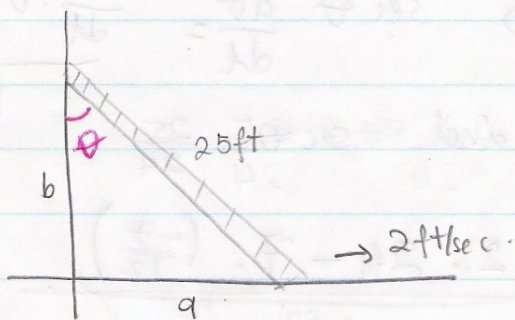 θ
25ft
b
→ 2ft/sec.
a